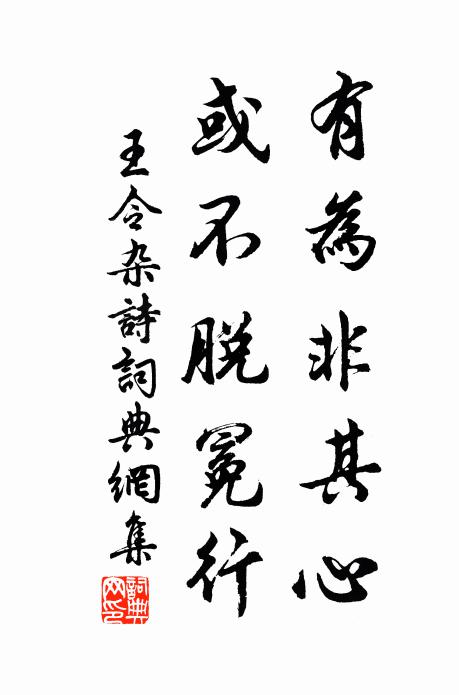 有為非其心
或不脫冕行
王令杂詩詞典網集
詞典网印